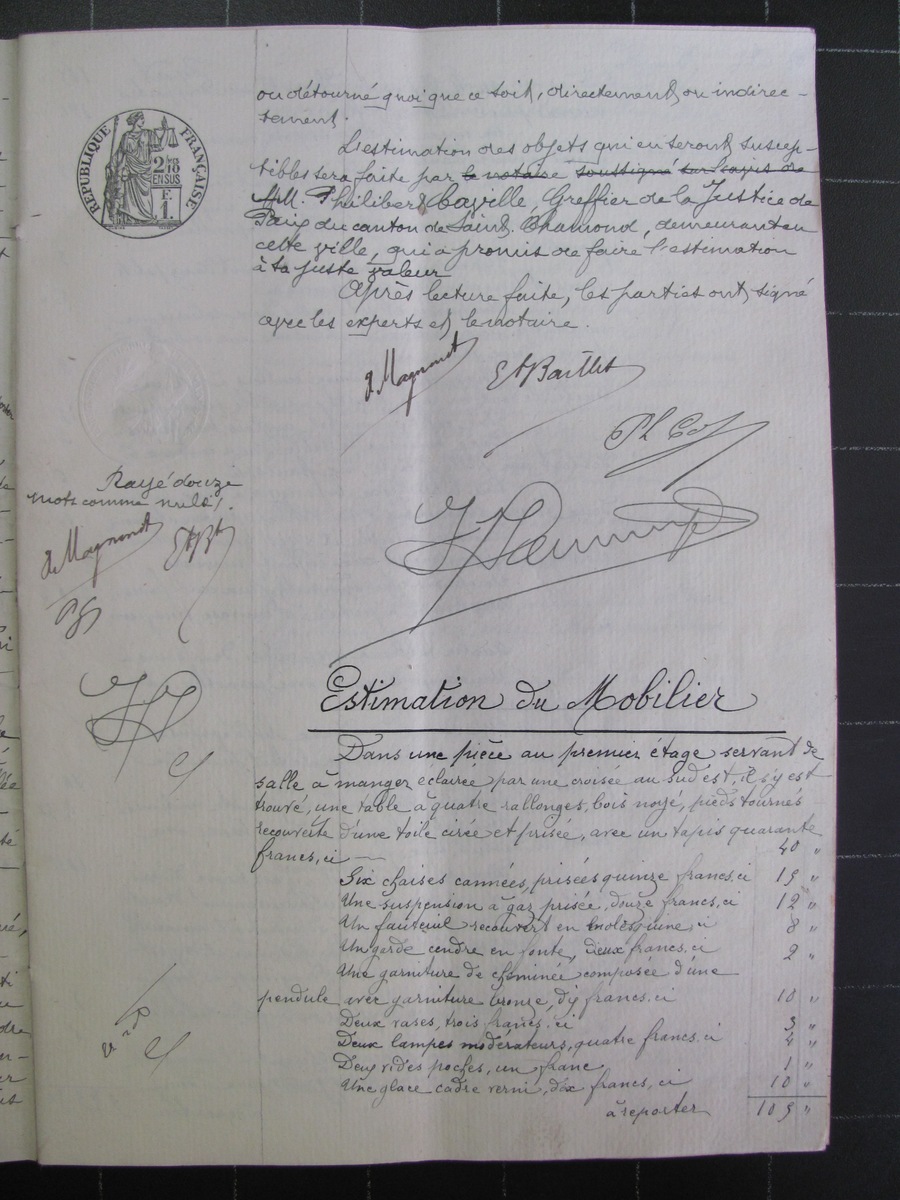 ou détourné quoique ce soit, directement ou indirec-
tement.
L'estimation des objets qui en seront suscep-
tibles sera faite par le notaire soussigné sur l'avis de
MM. Philibert Cayille, Greffier de la Justice de
Paix du canton de Saint-Chamond, demeurant en
cette ville, qui a promis de faire l'estimation
à sa juste valeur
Après lecture faite, les parties ont signé
avec les experts et le notaire.
RÉPUBLIQUE FRANÇAISE
2/10 EN SUS
F.
1.
E Baillet
Rayé douze
mots comme nuls.
Estimation du Mobilier
Dans une pièce au premier étage servant de
salle à manger éclairée par une croisée au sud est, il s'y est
trouvé, une table à quatre rallonges, bois noyé, pieds tournés
recouverte d'une toile cirée et prisée, avec un tapis quarante
francs, ci 40 "
Six chaises cannées, prisées quinze francs, ci 15 "
Une suspension à gaz prisée, douze francs, ci 12 "
Un fauteuil recouvert en molesquine, ci 8 "
Un garde cendre en fonte, deux francs, ci 2 "
Une garniture de cheminée composée d'une
pendule avec garniture bronze, dix francs, ci 10 "
Deux vases, trois francs, ci 3 "
Deux lampes modérateurs, quatre francs, ci 4 "
Deux vides poches, un franc, 1 "
Une glace cadre verni, dix francs, ci 10 "
à reporter 105 "